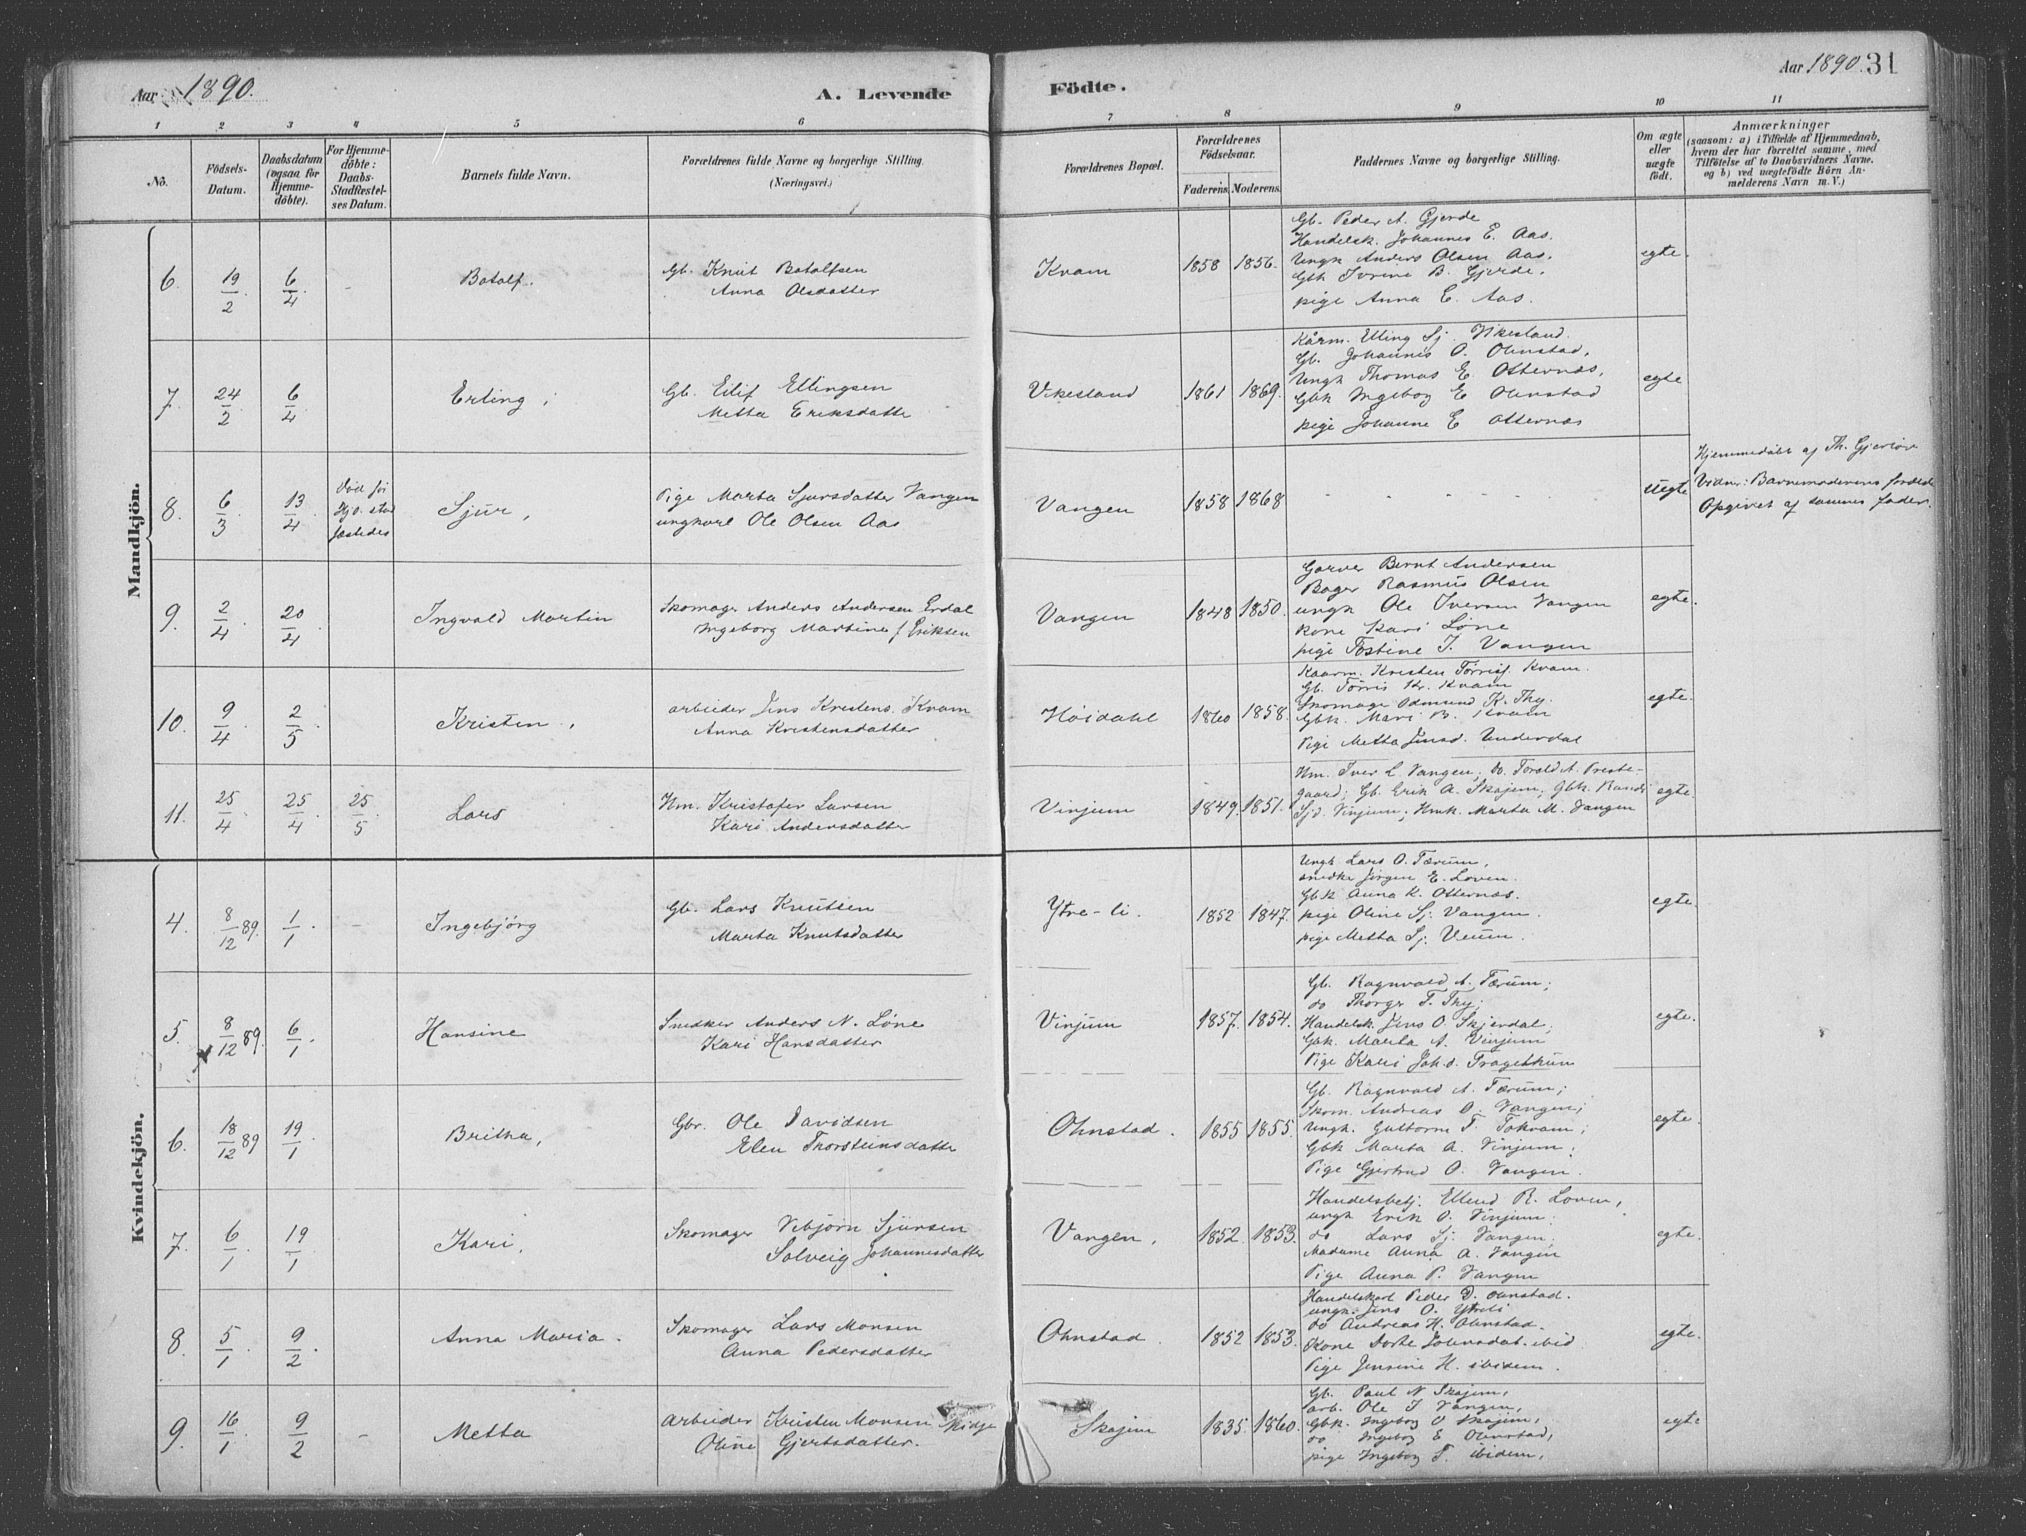 Aar 1890.
A. Levende Födte.
Aar 1890. 31
1 2 3 4 5 6 7 8 9 10 11
No.
Födsels-Datum.
Daabsdatum (ogsaa for Hjemme-döbte).
For Hjemme-döbte: Daabs-Stadfæstel-ses Datum.
Barnets fulde Navn.
Forældrenes fulde Navne og borgerlige Stilling.
(Næringsvei.)
Forældrenes Bopæl.
Forældrenes Födselsaar.
Faderens. Moderens.
Faddernes Navne og borgerlige Stilling.
Om ægte eller uægte födt.
Anmærkninger
(saasom: a) i Tilfælde af Hjemmedaab, hvem der har forrettet samme, med Tilföielse af to Daabsvidners Navne. og b) ved uægtefödte Börn An-melderens Navn m. V.)
Mandkjön.
6. 19/2 6/4 - Botolf.
Gb. Knut Botolfsen
Anna Olsdatter
Kvam 1858 1856.
Gb. Peder A. Gjerde
Handelsk. Johannes E. Aas.
Ungk Anders Olsen Aas.
Gbk Iverine B. Gjerde.
pige Anna E. Aas.
egte.
7. 24/2 6/4 Erling,
Gb. Eilif Ellingsen
Metta Eriksdatte
Vikesland 1861 1869.
Kårm. Elling Sj. Vikesland.
Gb. Johannes O. Ohnstad,
Ungk Thomas E. Otternæs,
Gbk Ingebog E Ohnstad
pige Johanne E Otternæs
egte
8. 6/3 13/4
død før Hj.d. stad fæstedes
Sjur,
Pige Marta Sjursdatter Vangen
ungkarl Ole Olsen Aas
Vangen 1858 1868
uegte
Hjemmedøbt af Th. Gjerløv
Vidner: Barnemoderens foræld.
Opgivet af sammes fader.
9. 2/4 20/4 Ingvald Martin
Skomager Anders Andersen Erdal
Ingeborg Martine f. Eriksen
Vangen 1848 1850.
Garver Bernt Andersen
Bager Rasmus Olsen
ungk Ole Iversen Vangen
kone Kari Løne
pige Tostine I. Vangen
egte.
10. 9/4 2/5 Kristen,
arbeider Jens Kristens. Kvam
Anna Kristensdatter
Høidahl 1860 1858.
Kaarm. Kristen Tørrisf. Kvam.
Gb. Tørris Kr. Kvam
Skomage Odmund K. Thy.
Gbk. Mari B. Kvam
Pige Metta Jensd. Underdal
egte.
11. 25/4 25/4 25/5 Lars
Hm. Kristofer Larsen
Kari Andersdatter
Vinjum 1849. 1851.
Hm. Iver L. Vangen; do. Torald A. Preste-
gaard; Gb. Erik A. Skajem; Gbk. Randi
Sjd. Vinjum; Hmk. Marta M. Vangen
egte.
Kvindekjön.
4. 8/12 89. 1/1 Ingebjörg
Gb. Lars Knutsen
Marta Knutsdatter
Ytre-li. 1852 1847.
Ungk Lars O. Tærum,
snedke Jørgen E. Loven.
Gbk Anna K. Otternæs.
pige Oline Sj. Vangen.
pige Metta Sj. Veum.
egte.
5. 8/12 89. 6/1. Hansine
Snedker Anders N. Løne
Kari Hansdatter
Vinjum 1857. 1854.
Gb. Ragnvald A. Tærum;
do Thorger T. Thy;
Handelsk. Jens O. Skjerdal,
Gbk. Marta A. Vinjum
Pige Kari Joh.d. Fragethum
egte.
6. 18/12 89 19/1. Britha,
Gbr. Ole Davidsen
Elen Thorsteinsdatte
Ohnstad. 1855 1855.
Gb. Ragnvald A. Tærum;
Skom. Andreas O. Vangen;
Ungk. Guttorm T. Tokvam;
Gbk Marta A. Vinjum.
Pige Gjertrud O. Vangen.
egte.
7. 6/1 19/1 Kari,
Skomager Vibjørn Sjursen
Solveig Johannesdatter
Vangen. 1852. 1853.
Handelsbetj. Ellend R. Loven,
ungk Erik O. Vinjum.
do Lars Sj. Vangen.
Madame Anna A. Vangen
Pige Anna P. Vangen
egte.
8. 5/1 9/2 Anna Maria.
Skomager Lars Monsen
Anna Pedersdatter
Ohnstad 1852 1853.
Handelskarl Peder D. Ohnstad.
ungk. Jens O. Ytreli
do Andreas H. Ohnstad.
Kone Dorte Johnsdat. ibid
Pige Jensine H. ibidem.
egte.
9. 16/1 9/2 - Metta
Arbeider Kristen Monsen
Oline Gjertsdatter.
Skajem 1835. 1860.
Gb. Paul N. Skajem,
arb. Ole I Vangen,
Gbk. Ingebog O Skajem,
do Ingebog E Ohnstad,
pige Ingebog T. ibidem,
egte